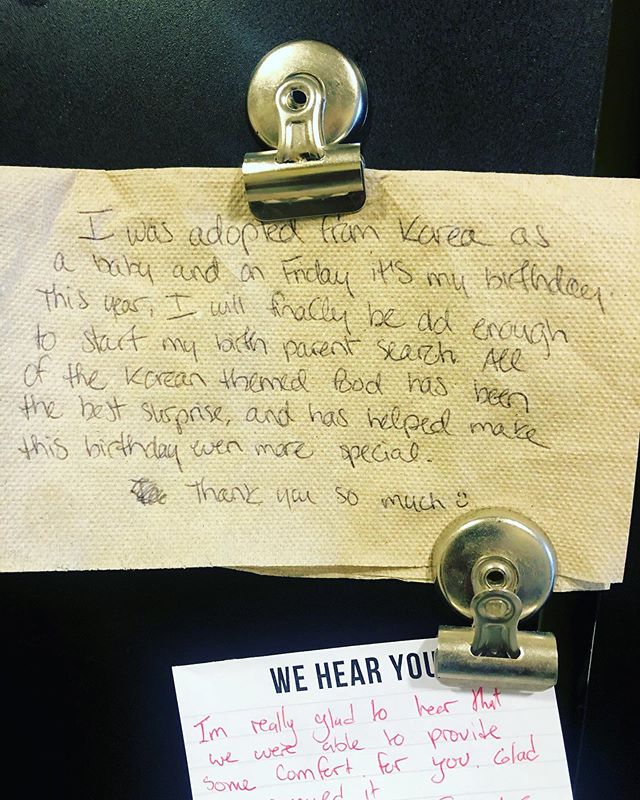 I was adopted from Korea as
a baby and on Friday it's my birthday.
This year, I will finally be old enough
to start my birth parent search. All
of the Korean themed food has been
the best surprise, and has helped make
this birthday even more special.
Thank you so much
WE HEAR YOU
I'm really glad to hear that
we were able to provide
some comfort for you. Glad
it